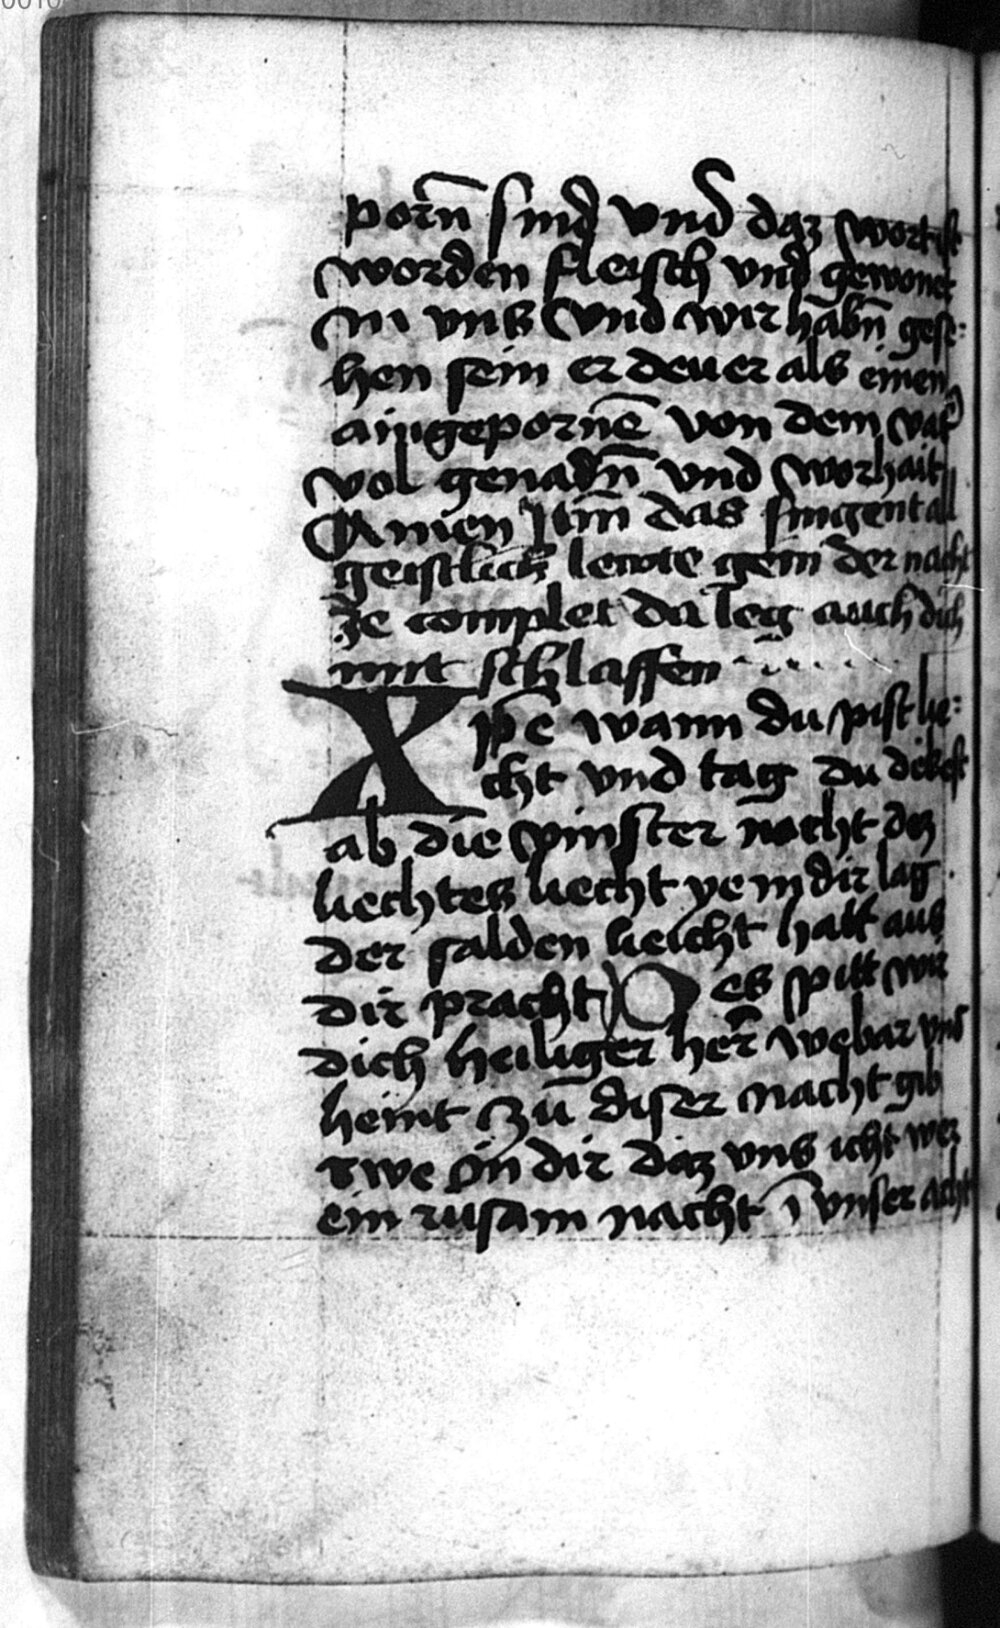 0010
porñ sind vnd daz wort ist
worden fleisch vnd gewonet
in vns Vnd wir habñ gese:
hen sein er dew er als einen
aingepornē von dem vat̄
vol genadñ vnd worhait
Amen Jtm̄ das singent all
geistlich lewte gein der nacht
ze complet da leg auch dich
mit schlaffen
Xpē wann du pist lie:
cht vnd tag du dekest
ab die vinster nacht dez
liechtes liecht ye in dir lag
der salden liecht hatt aus
dir pracht Des pitt wir
dich heiliger her̄ webar vns
heint zu diser nacht gib
rwe in dir daz vns icht wez
ein rusam nacht ī vnser acht